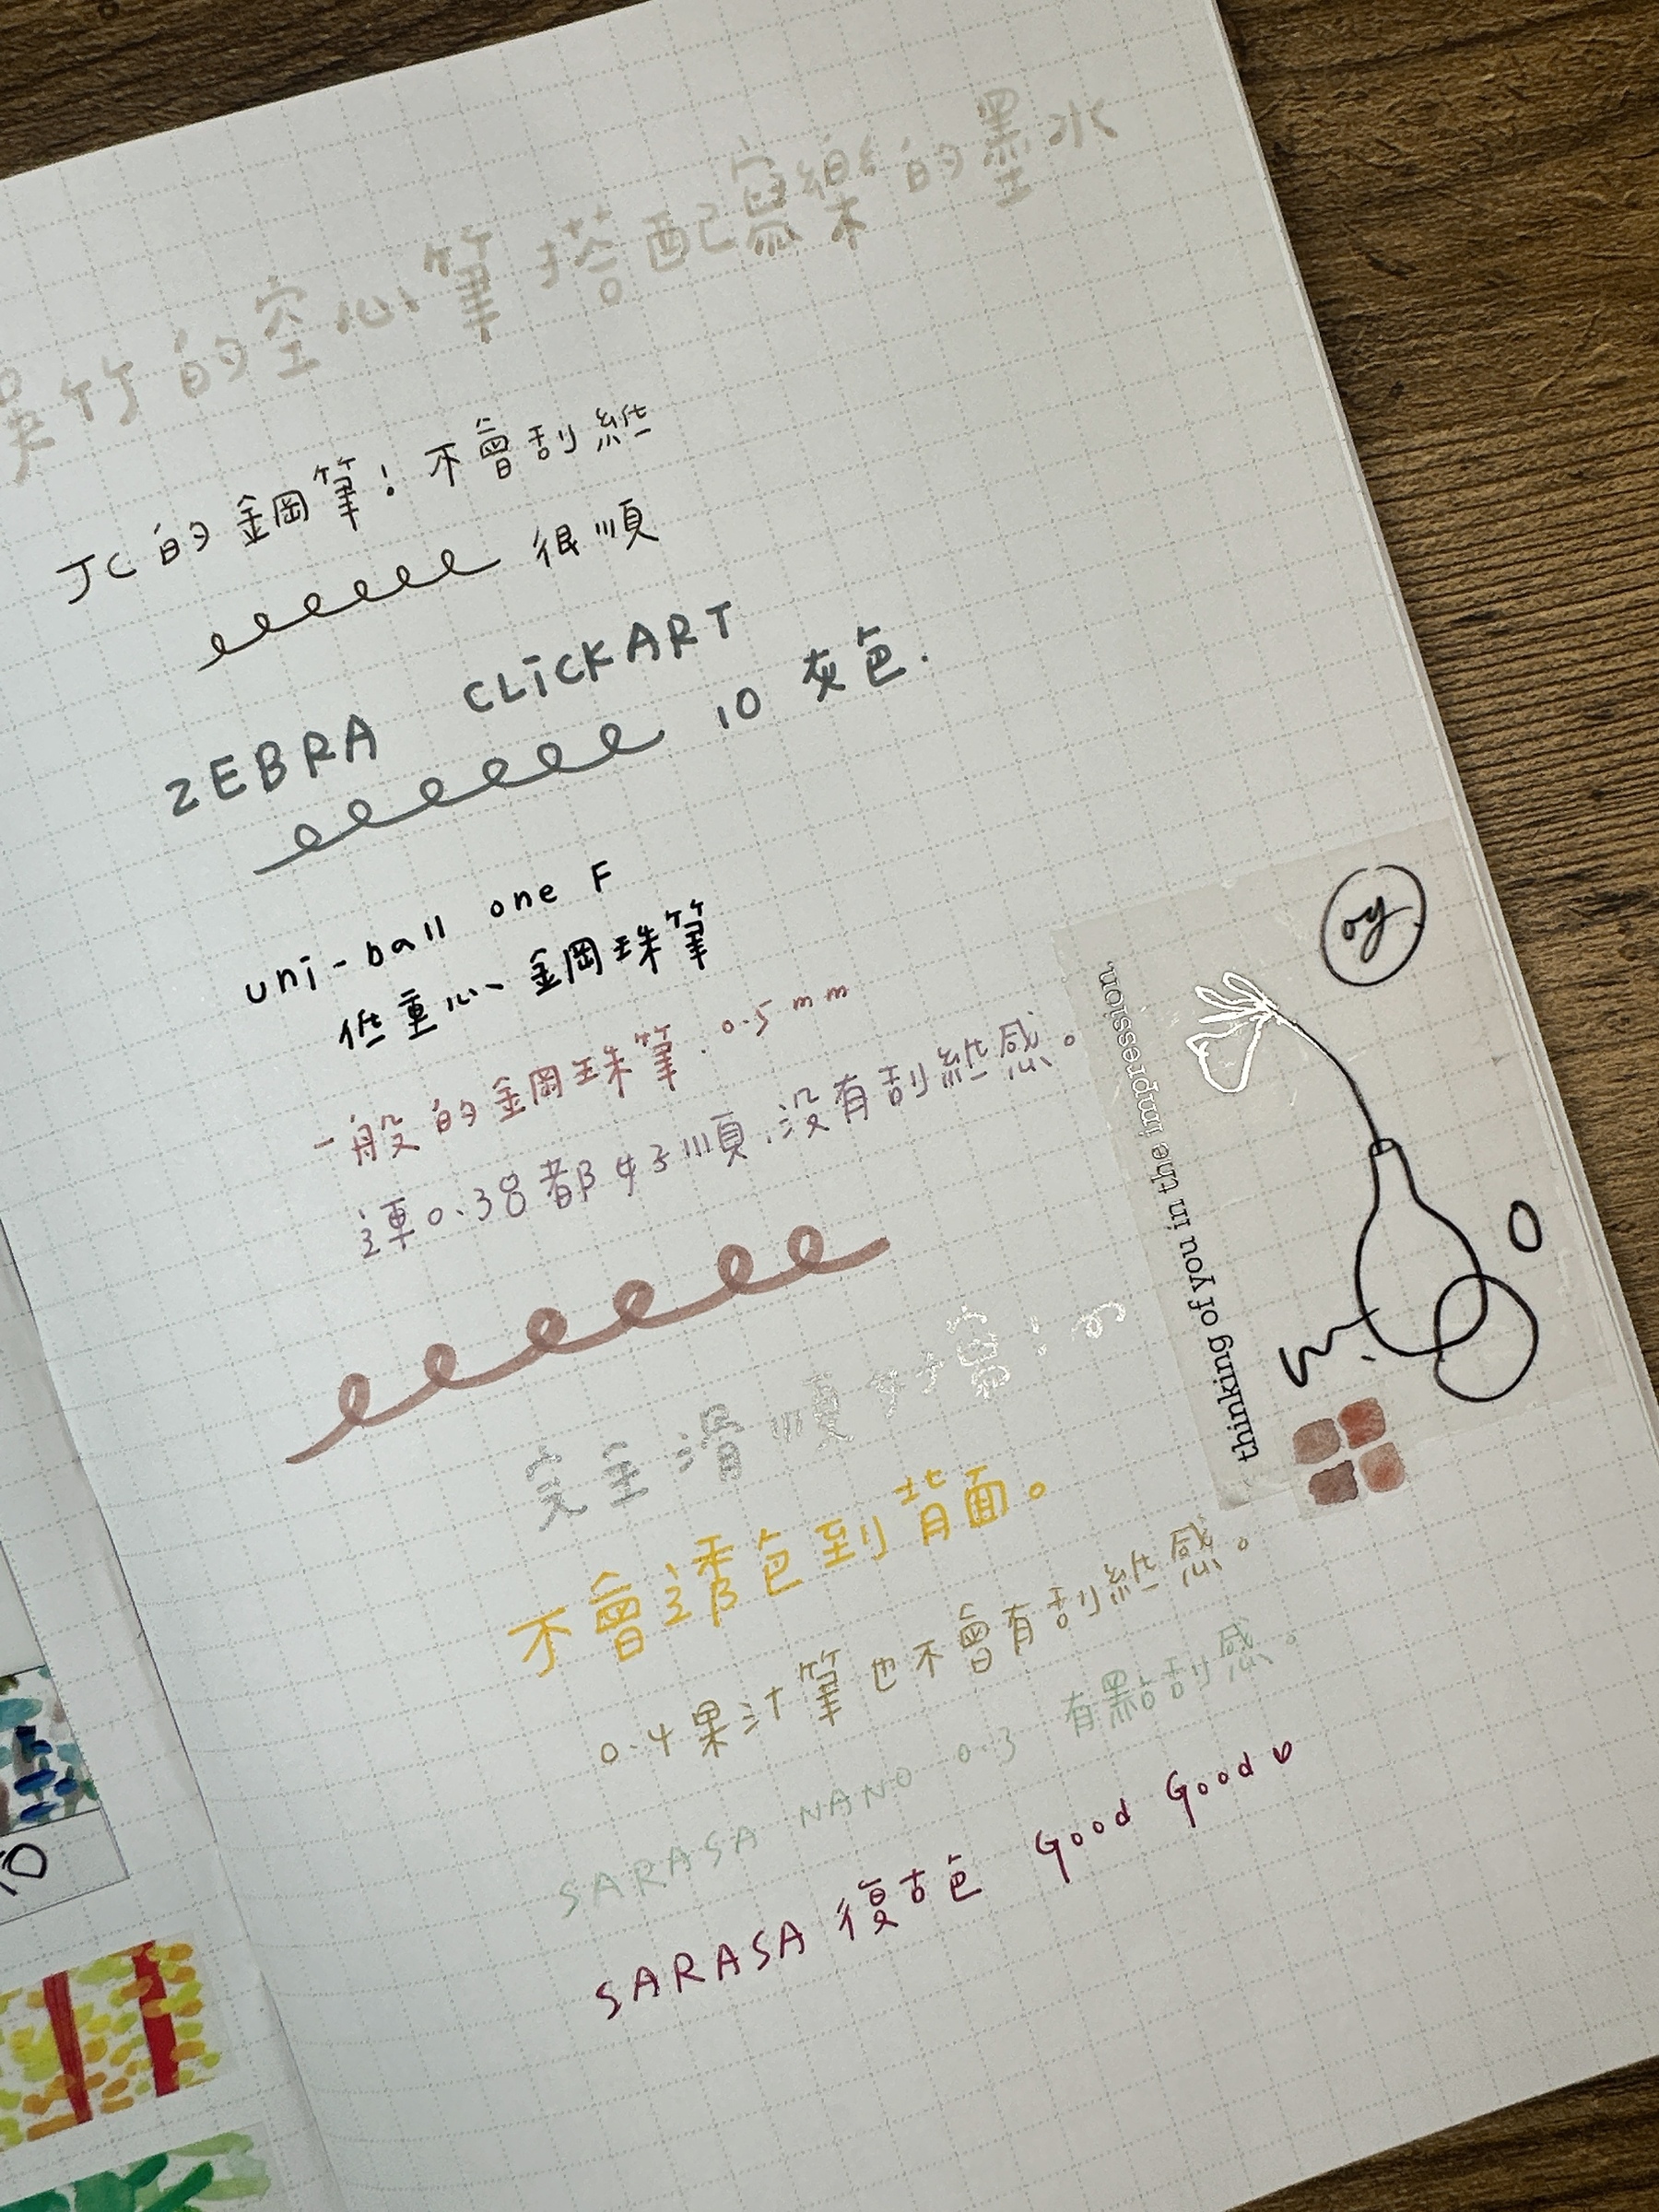 吳竹的空心筆搭配寫樂的墨水
JC的鋼筆！不會刮紙
很順
ZEBRA CLiCKART
10 灰色.
uni-ball one F
低重心鋼珠筆
一般的鋼珠筆.0.5mm
連0.38都好順.沒有刮紙感。
完全滑順好寫！
不會透色到背面。
0.4果汁筆也不會有刮紙感。
SARASA NANO 0.3 有點刮感。
SARASA 復古色 Good Good♡
oy
thinking of you in the impression.
10